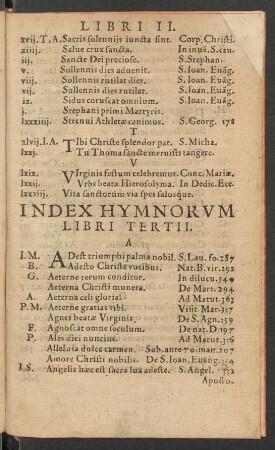 LIBRI II.
xvij. T. A. Sacris solennijs iuncta sint. Corp. Christi.
xiiij. Salue crux sancta. In inuē. S. cru.
iij. Sancte Dei preciose. S. Stephan.
v. Sollennis dies aduenit. S. Ioan. Euāg.
viij. Sollennis rutilat dies. S. Ioan. Euāg.
vij. Sollennis dies rutilat. S. Ioan. Euāg.
ix. Sidus coruscat omnium. S. Ioan. Euāg.
j. Stephani primi Martyris.
lxxxiiij. Strenui Athletæ canimus. S. Georg. 178
T
xlvij. I. A. Tibi Christe splendor pat. S. Micha.
lxxj. Tu Thoma sancte meruisti tangere.
V
lxix. Virginis festum celebremus. Conc. Mariæ.
lxxij. Vrbs beata Hierosolyma. In Dedic. Ece.
Vita sanctorum via spes salusque.
INDEX HYMNORVM
LIBRI TERTII.
A
I. M. ADest triumphi palma nobil. S. Lau. fo. 287
B. Adesto Christe vocibus. Nat. B. vir. 292
G. Aeterne rerum conditor. In diluc.
Aeterna Christi munera. De Mart. 294
A. Aeterna celi gloria Ad Matut. 362
P. M. Aeterne gratias tibi. Visit Mar. 317
Agnes beatæ Virginis. De S. Agn. 359
F. Agnoscat omne seculum. De nat. D. 197
P. Ales diei nuncius. Ad Matut. 316
Alleluia dulce carmen. Sab. ante 70. man. 207
Amore Christi nobilis. De S. Ioan. Euang.
I. S. Angelis hæc est sacra lux adeste. S. Angel.
Aposto-